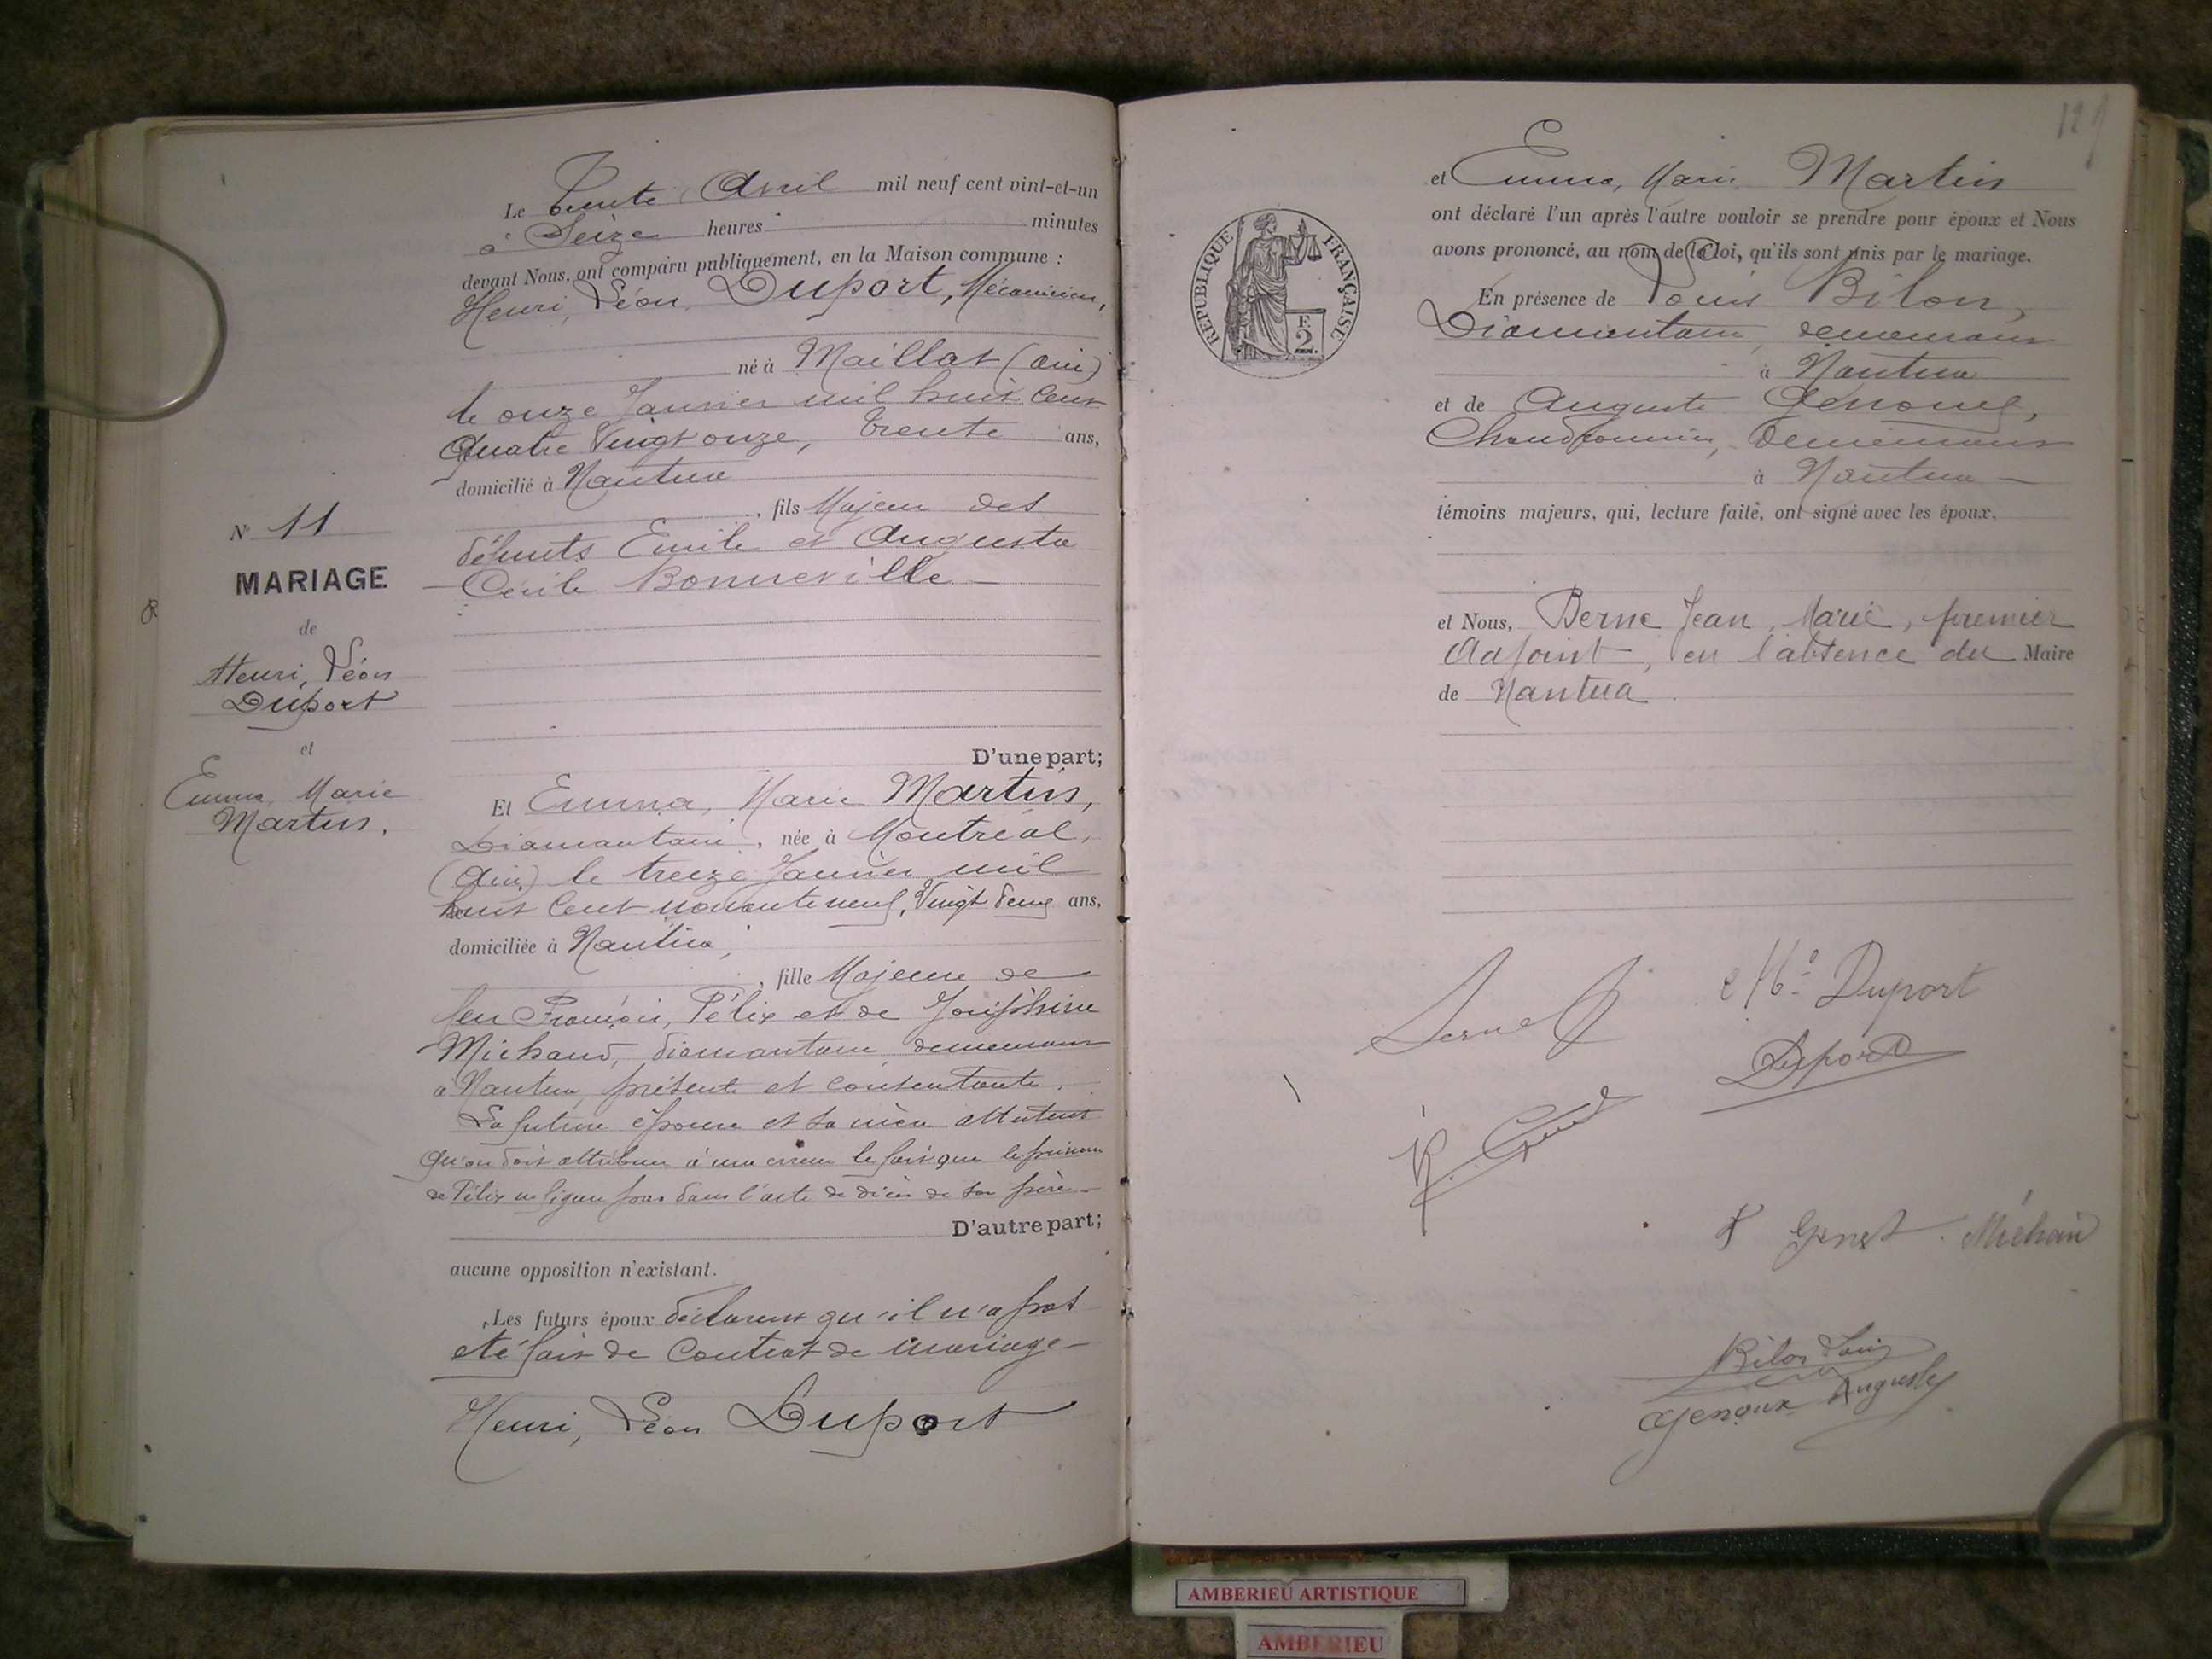 Le Trente Avril mil neuf cent vint-et-un
à Seize heures minutes
devant Nous, ont comparu publiquement, en la Maison commune :
Henri, Léon Duport, Mécanicien,
né à Maillat (Ain)
le onze Janvier mil huit Cent
Quatre Vingt onze, trente ans,
domicilié à Nantua
, fils Majeur des
défunts Emile et Augusta
Cécile Bonneville
N° 11
MARIAGE
de
Henri, Léon
Duport
et
Emma, Marie
Martin.
D'une part;
Et Emma, Marie Martin,
Diamantaire, née à Montréal,
(Ain) le treize Janvier mil
huit Cent nonante neuf, Vingt deux ans,
domiciliée à Nantua,
, fille Majeure de
feu François, Félix et de Joséphine
Michaud, diamantaire demeurant
à Nantua, présente et consentante.
La future épouse et sa mère attestent
qu'on doit attribuer à une erreur le fait que le prénom
de Félix ne figure pas dans l'acte de décès de son père
D'autre part;
aucune opposition n'existant.
Les futurs époux déclarent qu'il n'a pas
été fait de Contrat de mariage
Henri, Léon Duport
129
et Emma, Marie Martin
ont déclaré l'un après l'autre vouloir se prendre pour époux et Nous
avons prononcé, au nom de la loi, qu'ils sont unis par le mariage.
REPUBLIQUE FRANÇAISE
F. 2
En présence de Louis Bilon,
Diamantaire, demeurant
à Nantua
et de Auguste Genoux,
Chaudronnier, demeurant
à Nantua
témoins majeurs, qui, lecture faite, ont signé avec les époux,
et Nous, Berne Jean, Marie, premier
Adjoint, en l'absence du Maire
de Nantua
Berne
Duport
Duport
Bilon Louis
Genoux Auguste
AMBERIEU ARTISTIQUE
AMBERIEU